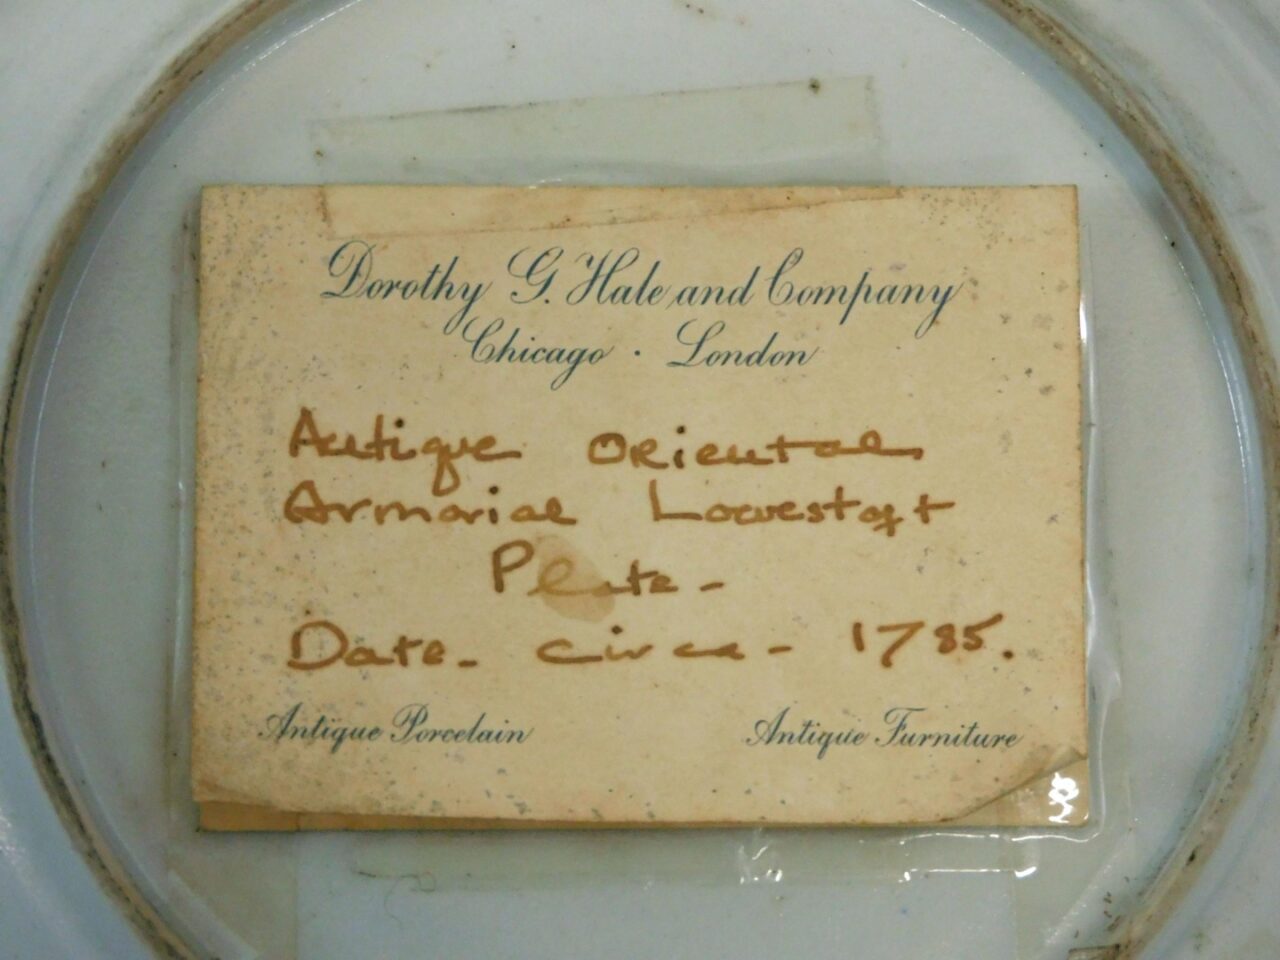 Dorothy G. Hale and Company
Chicago · London
Antique Oriental
Armorial Lowestoft
Plate -
Date - circa - 1785.
Antique Porcelain Antique Furniture